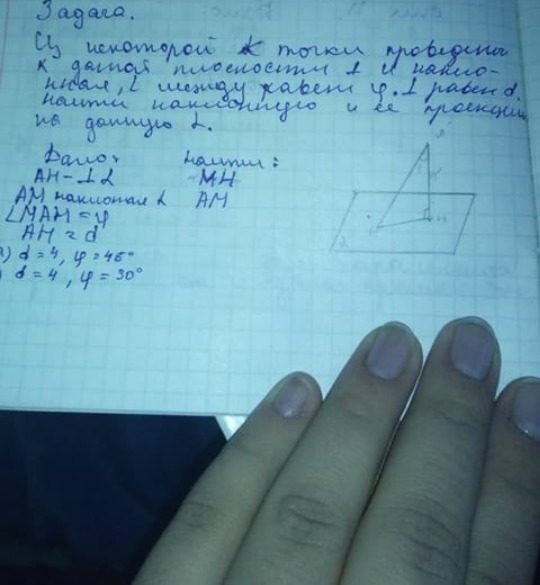 Задача.
Из некоторой точки проведены
к данной плоскости ⊥ и накло-
нная, ∠ между равен φ. ⊥ равен d.
найти наклонную и её проекции
на данную α.
Дано: найти:
AH - ⊥ α MH
AM наклонная α AM
∠MAH = φ
AH = d
а) d = 4, φ = 45°
) d = 4, φ = 30°